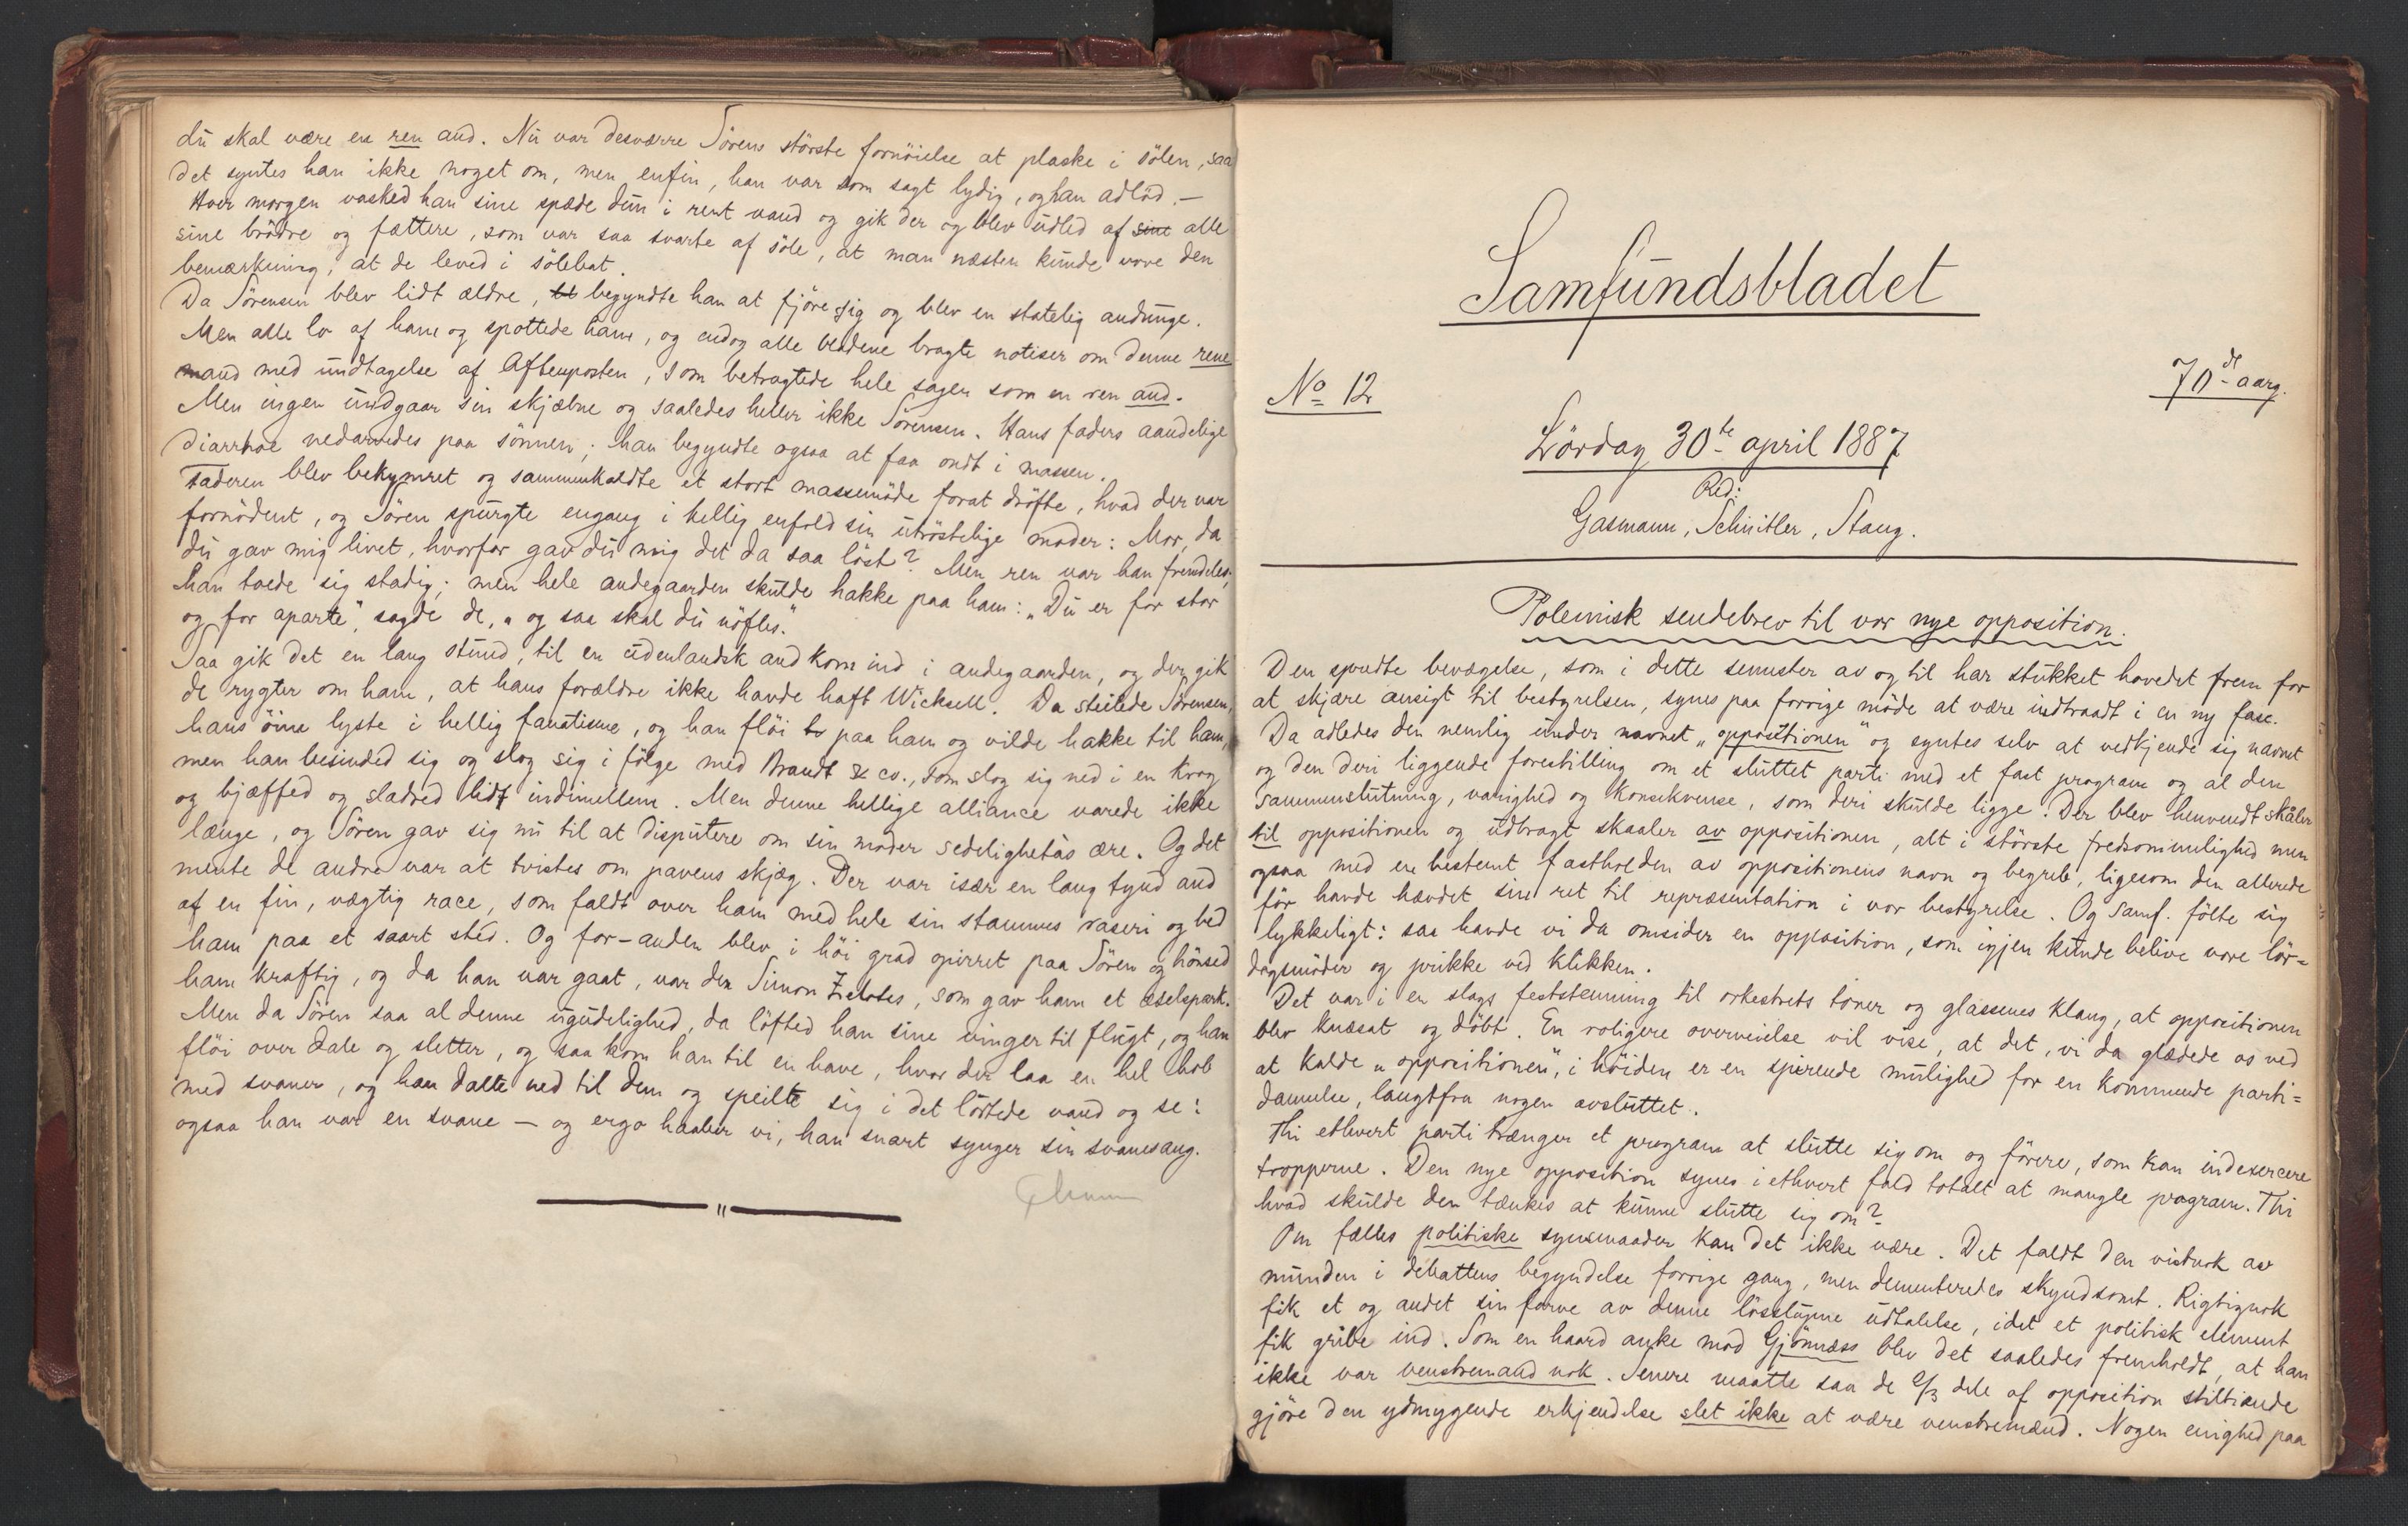 du skal være en ren and. Nu var desværre Sörens störste fornöielse at plaske i sölen, saa
det syntes han ikke noget om, men enfin, han var som sagt lydig, og han adlöd. —
Hver morgen vasked han sine spæde dun i rent vand og gik der og blev udled af sine alle
sine brödre og fættere, som var saa svarte af söle, at man næsten kunde vove den
bemærkning, at de leved i sölebat.
Da Sörensen blev lidt ældre, begyndte han at fjöre sig og blev en statelig andunge.
Men alle lo af ham og spottede ham, og endog alle bladene bragte notiser om denne rene
mand med undtagelse af Aftenposten, som betragtede hele sagen som en ren and.
Men ingen undgaar sin skjæbne og saaledes heller ikke Sörensen. Hans faders aandelige
diarrhoe nedarvedes paa sönnen; han begyndte ogsaa at faa ondt i massen.
Faderen blev bekymret og sammenkaldte et stort massemöde forat dröfte, hvad der var
fornödent, og Sören spurgte engang i hellig enfold sin utröstelige moder: Mor, da
du gav mig livet, hvorfor gav du mig det da saa löst? Men ren var han fremdeles;
han toede sig stadig; men hele andegaarden skulde hakke paa ham: „Du er for stor
og for aparte", sagde de, „og saa skal du nöfles."
Saa gik det en lang stund, til en udenlandsk and kom ind i andegaarden, og der gik
de rygter om ham, at hans forældre ikke havde haft Wicksell. Da steilede Sörensen,
hans öine lyste i hellig fanatisme, og han flöi to paa ham og vilde hakke til ham,
men han besinded sig og slog sig i fölge med Brandt & co., som slog sig ned i en krog
og bjæffed og sladred lidt indimellem. Men denne hellige alliance varede ikke
længe, og Sören gav sig nu til at disputere om sin moder sedelighetas ære. Og det
mente de andre var at tvistes om pavens skjæg. Der var især en lang tynd and
af en fin, vægtig race, som faldt over ham med hele sin stammes raseri og bed
ham paa et saart sted. Og for-anden blev i höi grad opirret paa Sören og hönsed
ham kraftig, og da han var gaat, var der Simon Zelotes, som gav ham et æselspark.
Men da Sören saa al denne ugudelighed, da löfted han sine vinger til flugt, og han
flöi over dale og sletter, og saa kom han til en have, hvor der laa en hel hob
med svaner, og han dalte ned til dem og speilte sig i det lörtede vand og se:
ogsaa han var en svane — og ergo haaber vi, han snart synger sin svanesang.
Samfundsbladet
No 12
70de aarg.
Lördag 30te april 1887
Red:
Gasmann, Schnitler, Stang.
Polemisk sendebrev til vor nye opposition.
Den spredte bevægelse, som i dette semester av og til har stukket hovedet frem for
at skjære ansigt til bestyrelsen, synes paa forrige möde at være indtraadt i en ny fase.
Da adledes den nemlig under navnet „oppositionen" og syntes selv at vedkjende sig navnet
og den deri liggende forestilling om et sluttet parti med et fast program og al den
sammenslutning, varighed og konsekvense, som deri skulde ligge. Der blev henvendt skåler
til oppositionen og udbragt skaaler av oppositionen, alt i störste fredsommelighed men
ogsaa med en bestemt fastholden av oppositionens navn og begreb, ligesom den allerede
för havde hævdet sin ret til repræsentation i vor bestyrelse. Og Samf. fölte sig
lykkeligt: saa havde vi da omsider en opposition, som igjen kunde belive vore lör-
dagsmöder og prikke ved klikken.
Det var i en slags feststemning til orkestrets toner og glassenes klang, at oppositionen
blev knæsat og döbt. En roligere overveielse vil vise, at det, vi da glædede os ved
at kalde „oppositionen", i höiden er en spirende mulighed for en kommende parti-
dannelse, langtfra nogen avsluttet.
Thi ethvert parti trænger et program at slutte sig om og förere, som kan indexercere
tropperne. Den nye opposition synes i ethvert fald totalt at mangle program. Thi
hvad skulde den tænkes at kunne slutte sig om?
Om fælles politiske synsmaader kan det ikke være. Det faldt den vistnok av
munden i debattens begyndelse forrige gang, men dementeredes skyndsomt. Rigtignok
fik et og andet sin farve av denne lösslupne udtalelse, idet et politisk element
fik gribe ind. Som en haard anke mod Gjönnæss blev det saaledes fremholdt, at han
ikke var venstremand nok. Senere maatte saa de 2/3 dele af opposition stiltiende
gjöre den ydmygende erkjendelse slet ikke at være venstremænd. Nogen enighed paa